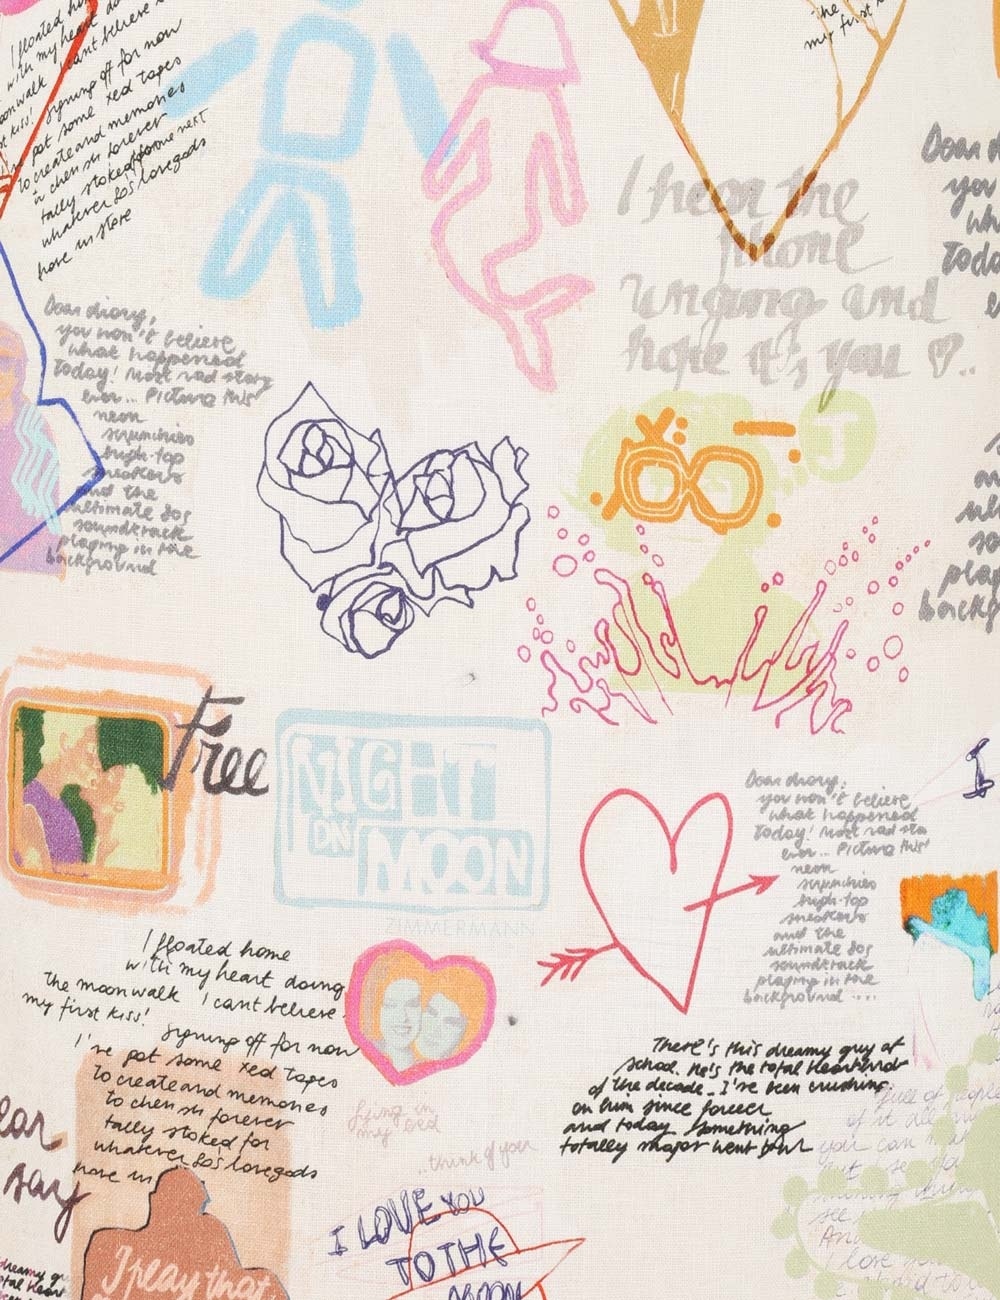 I floated
with my heart do
moonwalk I cant believe
st kiss! signing off for now
pot some xed tapes
To create and memories
cherish forever
tally stoked for
whatever 80's lovegods
have in store
the
my first
I hear the
phone
ringing and
hope it's you ♡..
Dear diary,
you won't believe
what happened
Today! Most rad story
ever... Picture this
neon
scrunchies
high-top
sneakers
and the
ultimate 80s
soundtrack
playing in the
background
Dear
you
wh
Toda
play
backg
J
Free
NIGHT
ON
MOON
ZIMMERMANN
Dear diary,
you won't believe
what happened
Today! Most rad sto
ever... Picture this
neon
scrunchies
high-top
sneakers
and the
ultimate 80s
soundtrack
playing in the
background ....
I floated home
with my heart doing
the moonwalk I cant believe
my first kiss!
signing off for now
I've pot some xed tapes
To create and memories
to cherish forever
tally stoked for
whatever 80's lovegods
have in
There's this dreamy guy at
school. He's the total heartthrob
of the decade. I've been crushing
on him since forever
and today something
totally major went down
lying in
my bed
..think of you
ear
say
I LOVE YOU
TO THE
MOON
I play that
full of people
of it all my
you can
see
And
I love you